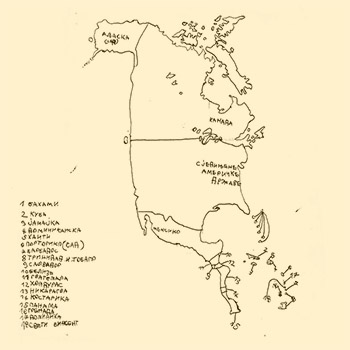 АЛАСКА
(САД)
КАНАДА
АМЕРИЧКЕ
ДРЖАВЕ
МЕКСИКО
1 БАХАМИ
2 КУБА
3 ЈАМАЈКА
4 ДОМИНИКАНСКА
5 ХАИТИ
6 ПОРТОРИКО (САД)
7 БАРБАДОС
8 ТРИНИДАД И ТОБАГО
9 САЛВАДОР
10 БЕЛИЗЕ
11 ГВАТЕМАЛА
12 ХОНДУРАС
13 НИКАРАГВА
14 КОСТАРИКА
15 ПАНАМА
16 ГРЕНАДА
17 ДОМИНИКА
18 СВЕТИ ВИНСЕНТ